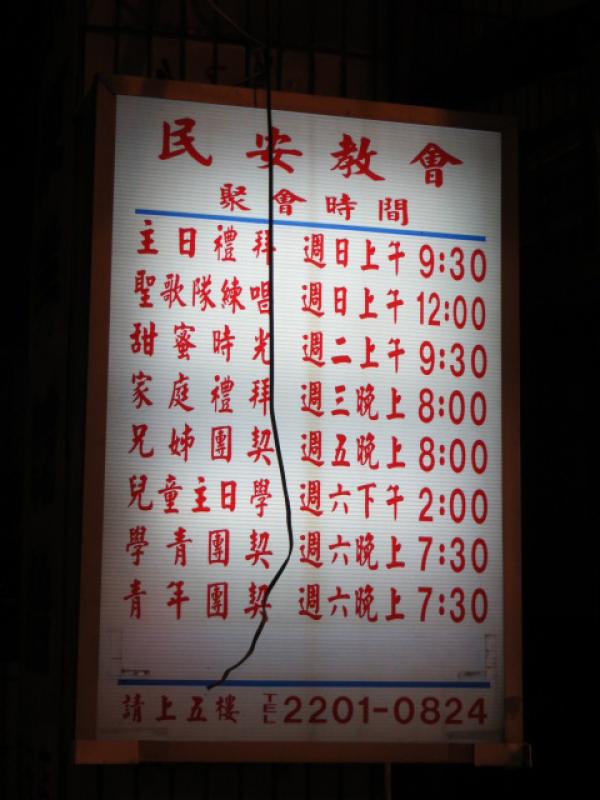 民安教會
聚會時間
主日禮拜 週日上午 9:30
聖歌隊練唱 週日上午 12:00
甜蜜時光 週二上午 9:30
家庭禮拜 週三晚上 8:00
兄姊團契 週五晚上 8:00
兒童主日學 週六下午 2:00
學青團契 週六晚上 7:30
青年團契 週六晚上 7:30
請上五樓 TEL 2201-0824